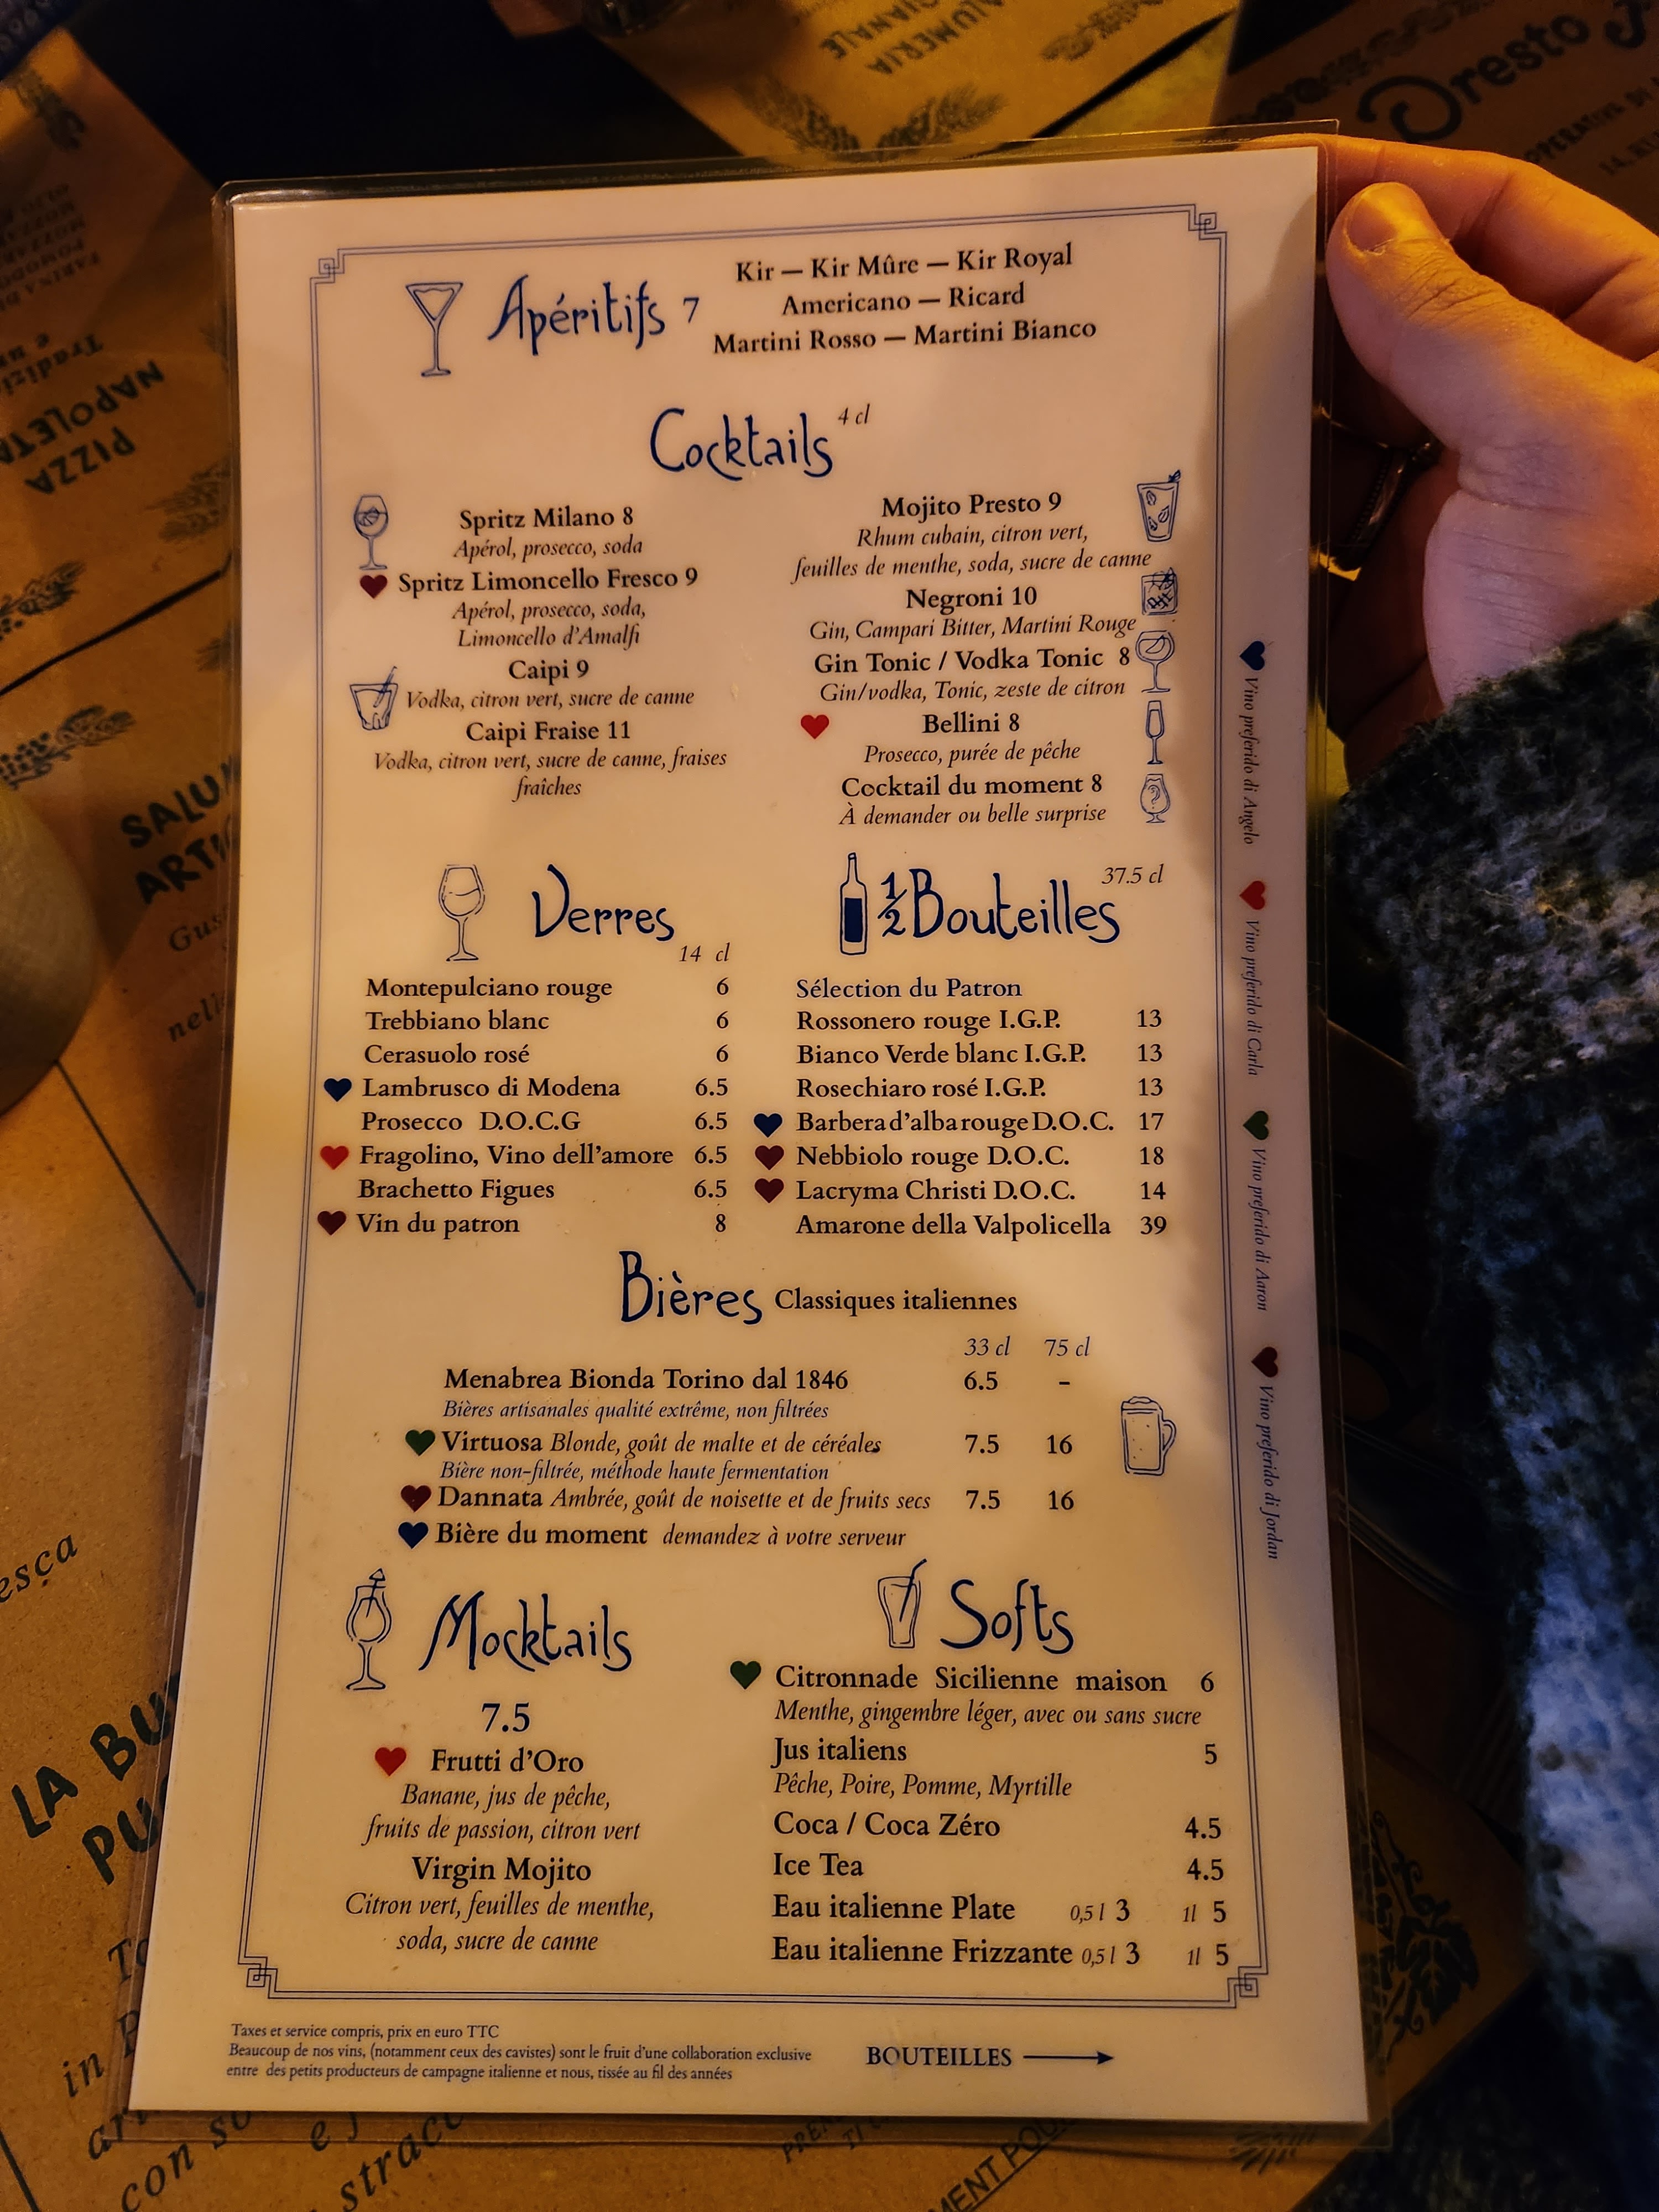 SALUMERIA
Presto
PIZZA
NAPOLETA
SALU
ARTI
Apéritifs 7
Kir — Kir Mûre — Kir Royal
Americano — Ricard
Martini Rosso — Martini Bianco
Cocktails 4 cl
Spritz Milano 8
Apérol, prosecco, soda
Spritz Limoncello Fresco 9
Apérol, prosecco, soda,
Limoncello d'Amalfi
Caipi 9
Vodka, citron vert, sucre de canne
Caipi Fraise 11
Vodka, citron vert, sucre de canne, fraises
fraîches
Mojito Presto 9
Rhum cubain, citron vert,
feuilles de menthe, soda, sucre de canne
Negroni 10
Gin, Campari Bitter, Martini Rouge
Gin Tonic / Vodka Tonic 8
Gin/vodka, Tonic, zeste de citron
Bellini 8
Prosecco, purée de pêche
Cocktail du moment 8
À demander ou belle surprise
Verres
14 cl
Montepulciano rouge 6
Trebbiano blanc 6
Cerasuolo rosé 6
Lambrusco di Modena 6.5
Prosecco D.O.C.G 6.5
Fragolino, Vino dell'amore 6.5
Brachetto Figues 6.5
Vin du patron 8
½ Bouteilles 37.5 cl
Sélection du Patron
Rossonero rouge I.G.P. 13
Bianco Verde blanc I.G.P. 13
Rosechiaro rosé I.G.P. 13
Barbera d'alba rouge D.O.C. 17
Nebbiolo rouge D.O.C. 18
Lacryma Christi D.O.C. 14
Amarone della Valpolicella 39
Bières Classiques italiennes
33 cl 75 cl
Menabrea Bionda Torino dal 1846 6.5 -
Bières artisanales qualité extrême, non filtrées
Virtuosa Blonde, goût de malte et de céréales 7.5 16
Bière non-filtrée, méthode haute fermentation
Dannata Ambrée, goût de noisette et de fruits secs 7.5 16
Bière du moment demandez à votre serveur
Mocktails
7.5
Frutti d'Oro
Banane, jus de pêche,
fruits de passion, citron vert
Virgin Mojito
Citron vert, feuilles de menthe,
soda, sucre de canne
Softs
Citronnade Sicilienne maison 6
Menthe, gingembre léger, avec ou sans sucre
Jus italiens 5
Pêche, Poire, Pomme, Myrtille
Coca / Coca Zéro 4.5
Ice Tea 4.5
Eau italienne Plate 0,5 l 3 1l 5
Eau italienne Frizzante 0,5 l 3 1l 5
Vino preferido di Angelo
Vino preferido di Carla
Vino preferido di Aaron
Vino preferido di Jordan
Taxes et service compris, prix en euro TTC
Beaucoup de nos vins, (notamment ceux des cavistes) sont le fruit d'une collaboration exclusive
entre des petits producteurs de campagne italienne et nous, tissée au fil des années
BOUTEILLES
LA BU
con su
e